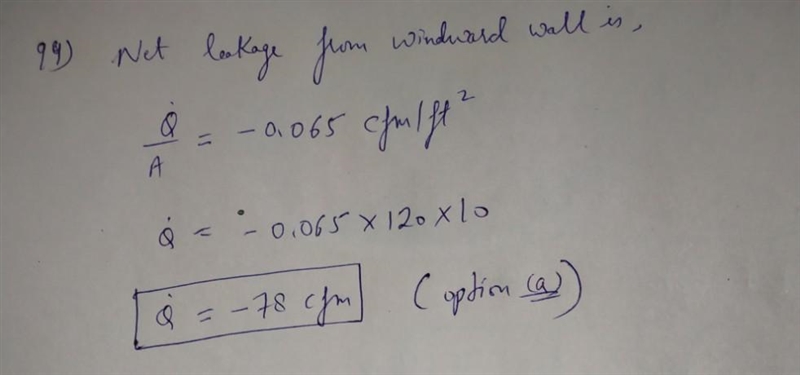 94) Net leakage from windward wall is,
Q̇/A = -0.065 cfm/ft²
Q̇ = -0.065 × 120 × 10
Q̇ = -78 cfm (option (a))